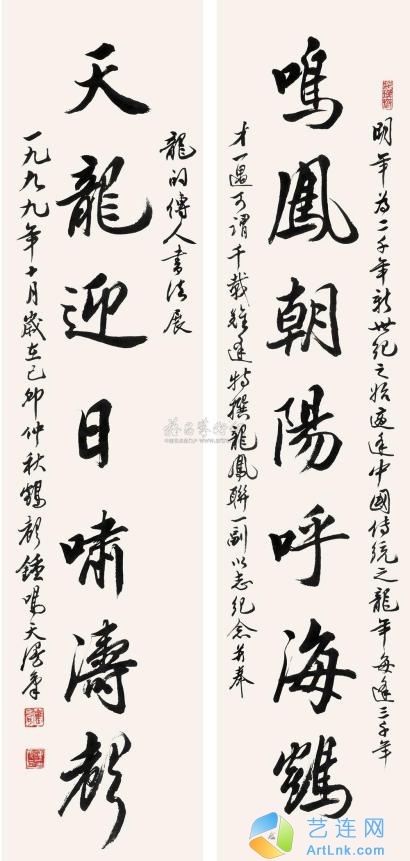 明年為二千年新世紀之始適逢中國傳統之龍年每逢三千年
鳴鳳朝陽呼海鶴
才一遇可謂千載難逢特撰龍鳳聯一副以志紀念並奉
龍的傳人書法展
天龍迎日嘯濤
一九九九年十月歲在己卯仲秋鶴鍾鳴天筆
艺连网
ArtLnk.com